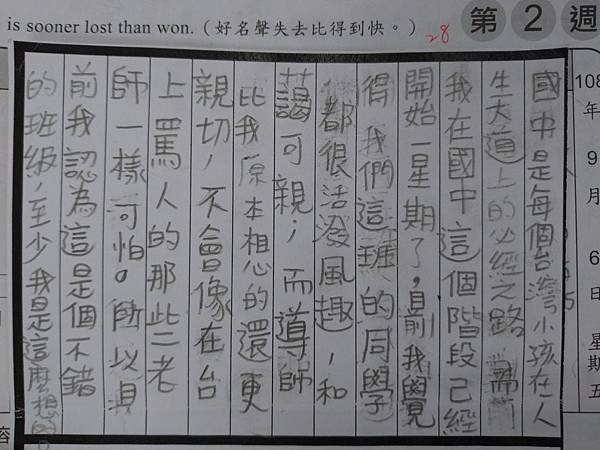 is sooner lost than won.（好名聲失去比得到快。）
28
第2週
108年9月6日星期五
國中是每個台灣小孩在人
生大道上的必經之路，而
我在國中這個階段已經
開始一星期了，目前我覺
得我們這班的同學
都很活潑風趣，和
藹可親，而導師
比我原本想的還更
親切，不會像在台
上罵人的那些老
師一樣可怕。所以目
前我認為這是個不錯
的班級，至少我是這麼想的。
容